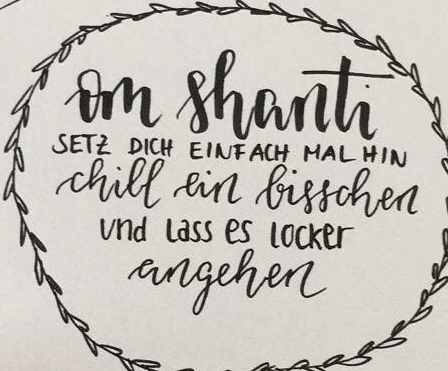 om shanti
SETZ DICH EINFACH MAL HIN
chill ein bisschen
und lass es locker
angehen